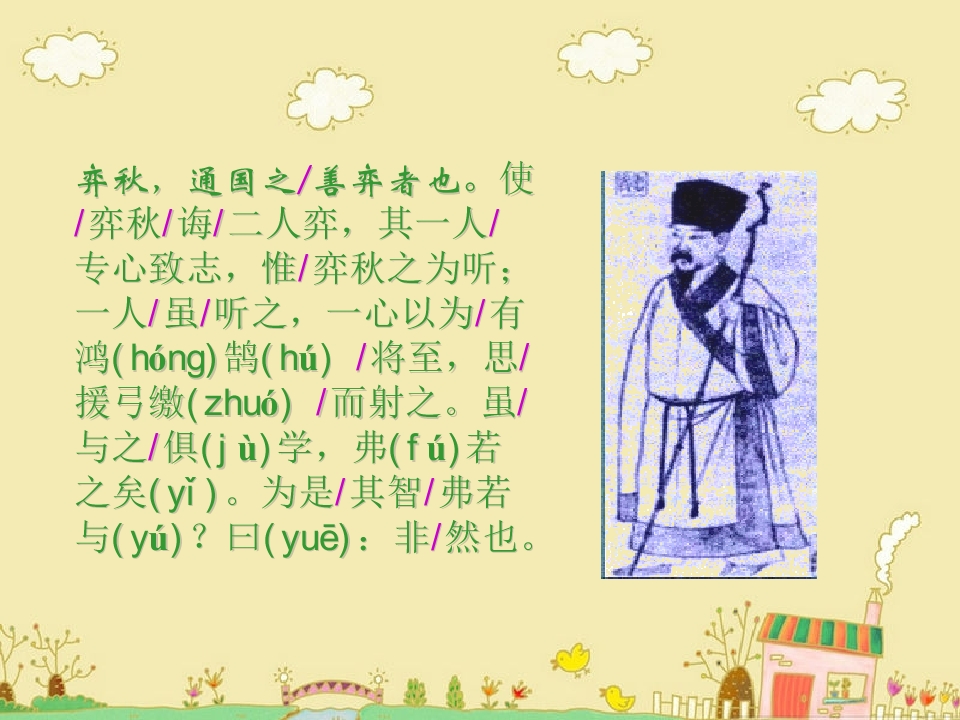 弈秋，通国之/善弈者也。使
/弈秋/诲/二人弈，其一人/
专心致志，惟/弈秋之为听；
一人/虽/听之，一心以为/有
鸿(hóng)鹄(hú) /将至，思/
援弓缴(zhuó) /而射之。虽/
与之/俱(jù)学，弗(fú)若
之矣(yǐ)。为是/其智/弗若
与(yú)？曰(yuē)：非/然也。